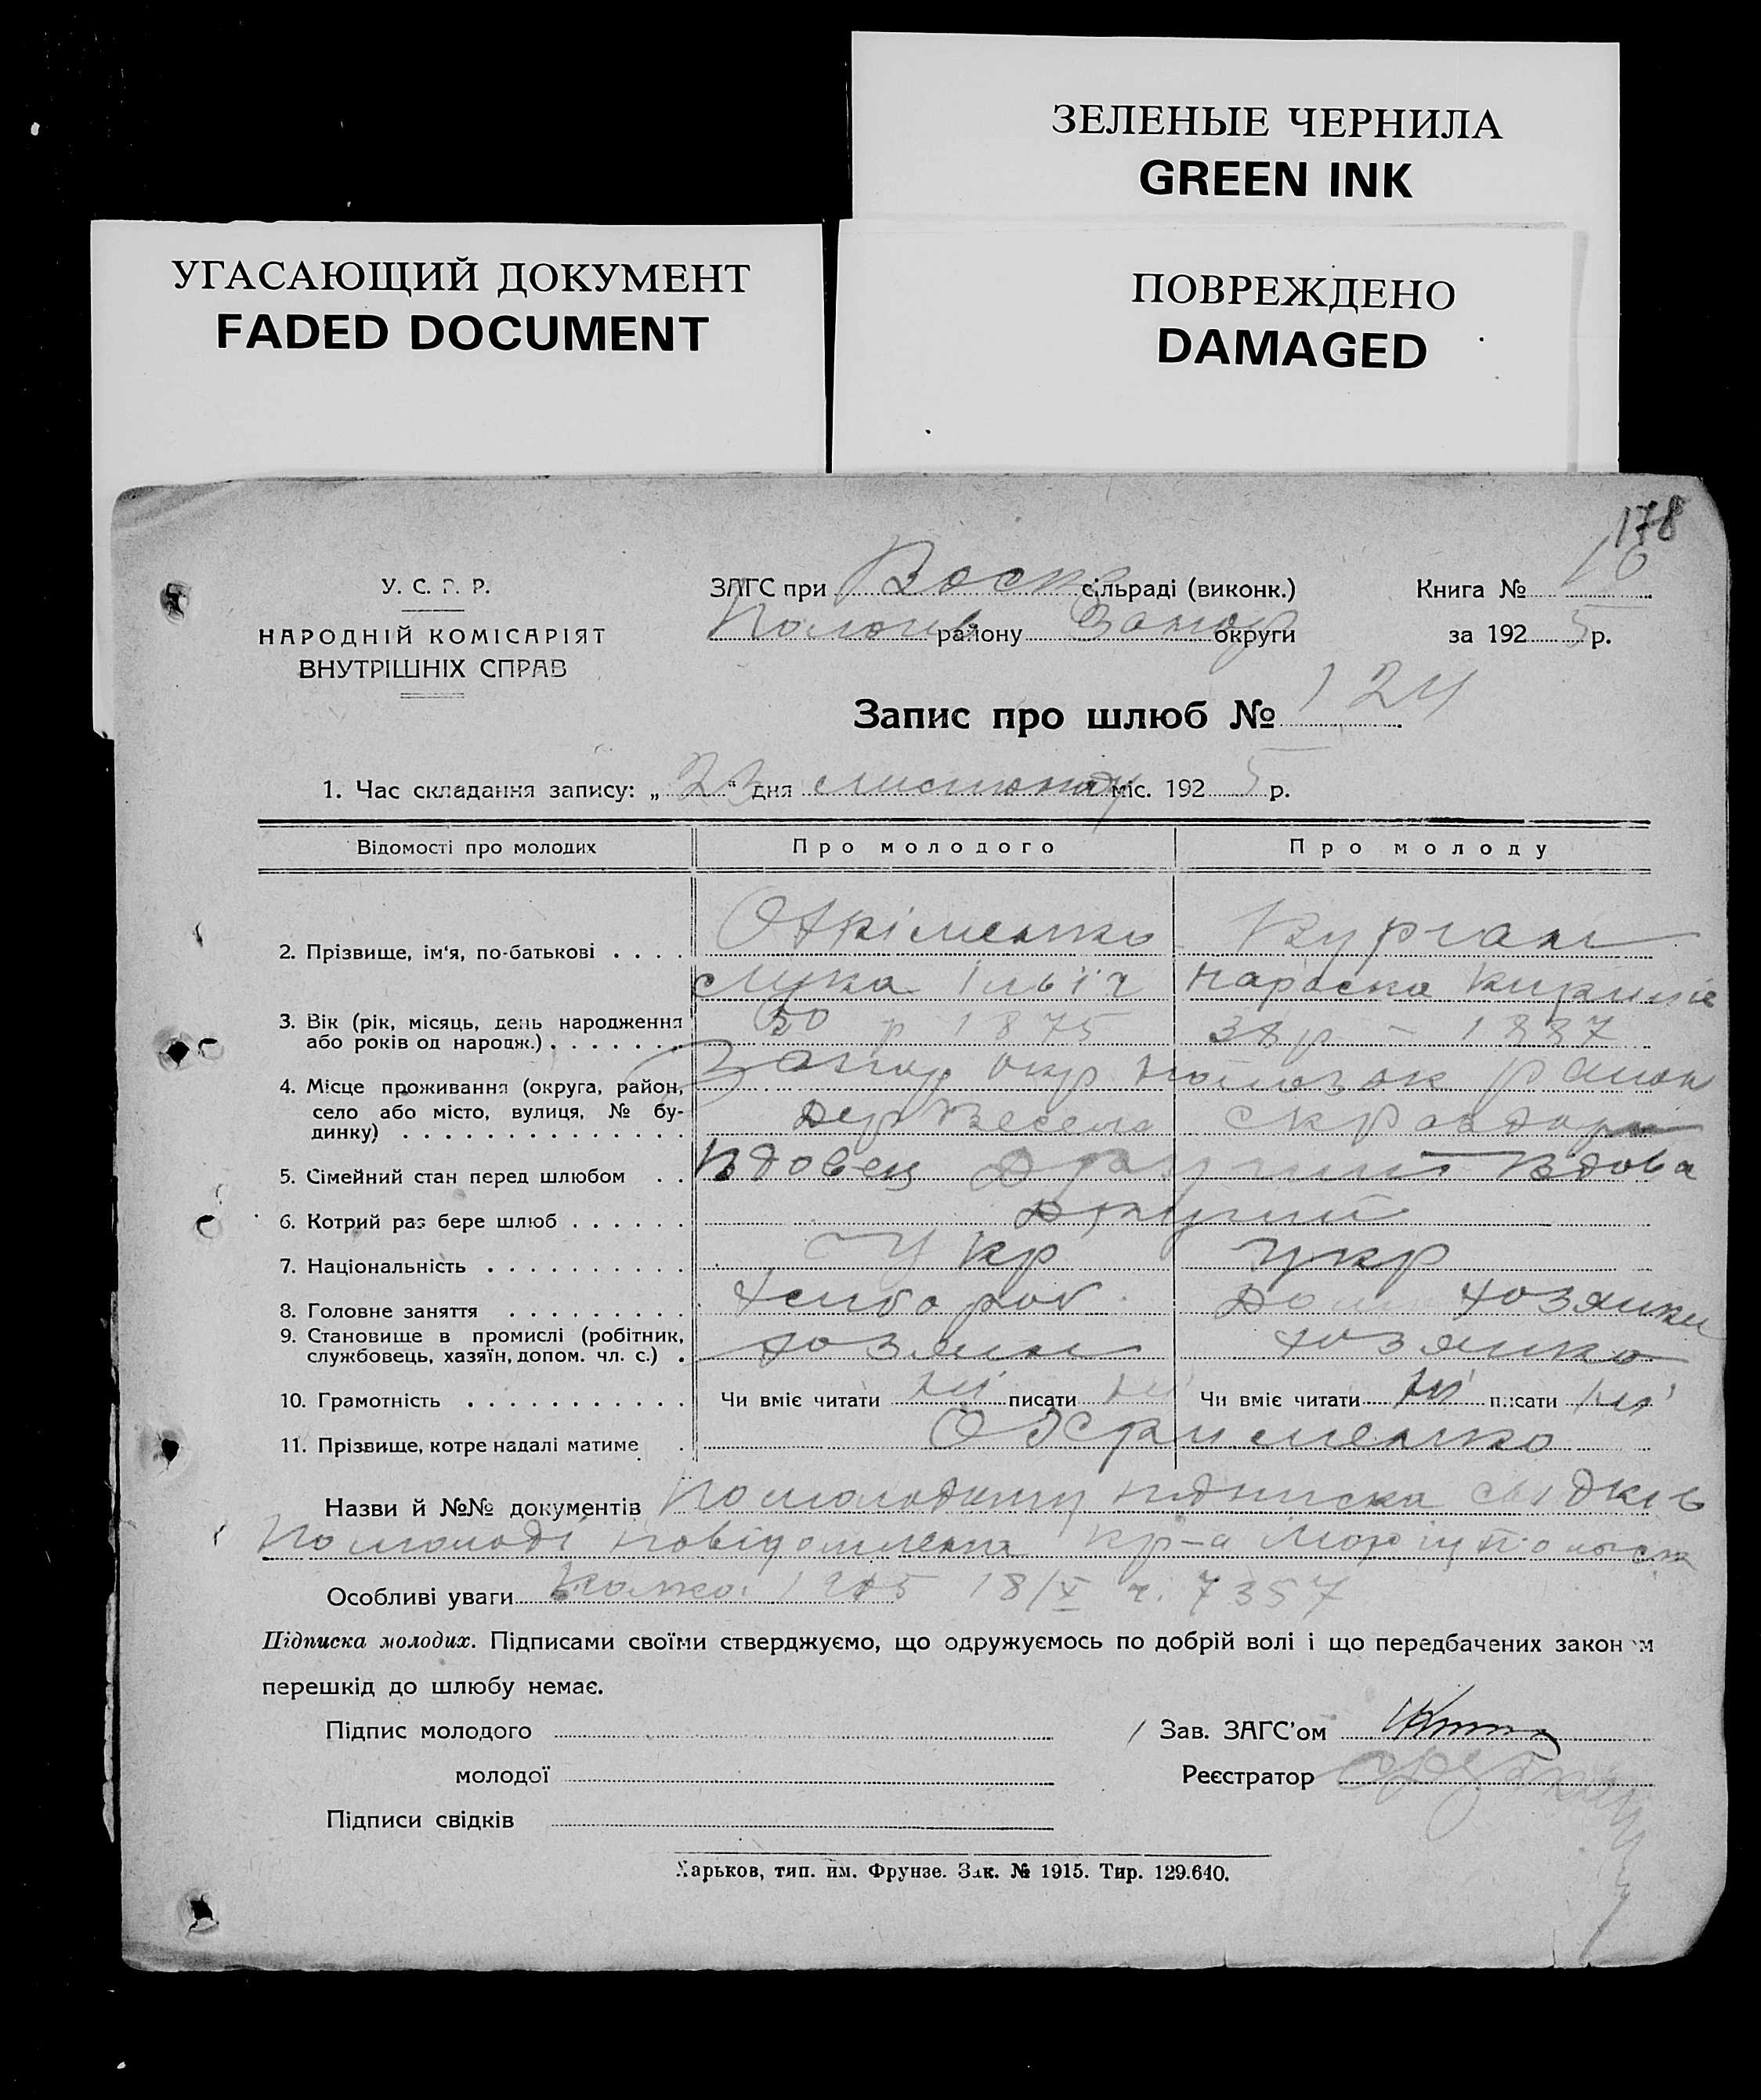 ЗЕЛЕНЫЕ ЧЕРНИЛА
GREEN INK
УГАСАЮЩИЙ ДОКУМЕНТ
FADED DOCUMENT
ПОВРЕЖДЕНО
DAMAGED
178
У. С. Р. Р.
НАРОДНІЙ КОМІСАРІЯТ
ВНУТРІШНІХ СПРАВ
ЗАГС при Воск сільраді (виконк.)
району Запор округи
Книга № 16
за 1925 р.
Запис про шлюб № 124
1. Час складання запису: „23“ дня листопаду міс. 1925 р.
Відомості про молодих Про молодого Про молоду
2. Прізвище, ім'я, по-батькові Охріменко Курган
Лука Ільіч Параска
3. Вік (рік, місяць, день народження або років од народж.) 50 р 1875 38 р – 1887
4. Місце проживання (округа, район, село або місто, вулиця, № будинку) Запор окр район
дер Весела
5. Сімейний стан перед шлюбом Вдовец Вдова
6. Котрий раз бере шлюб другий
7. Національність Укр укр
8. Головне заняття хлибороб Дом хозяйки
9. Становище в промислі (робітник, службовець, хазяїн, допом. чл. с.) хозяин хозяйка
10. Грамотність Чи вміє читати ні писати ні Чи вміє читати ні писати ні
11. Прізвище, котре надалі матиме
Назви й №№ документів По молодому підписка свідків
По молоді повідомлення
Особливі уваги 18/X ч. 7357
Підписка молодих. Підписами своїми стверджуємо, що одружуємось по добрій волі і що передбачених законом
перешкід до шлюбу немає.
Підпис молодого
Зав. ЗАГС'ом
молодої
Реєстратор
Підписи свідків
Харьков, тип. им. Фрунзе. Зак. № 1915. Тир. 129.640.